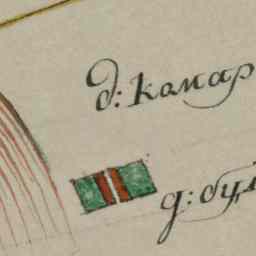 д: комар
д: бул